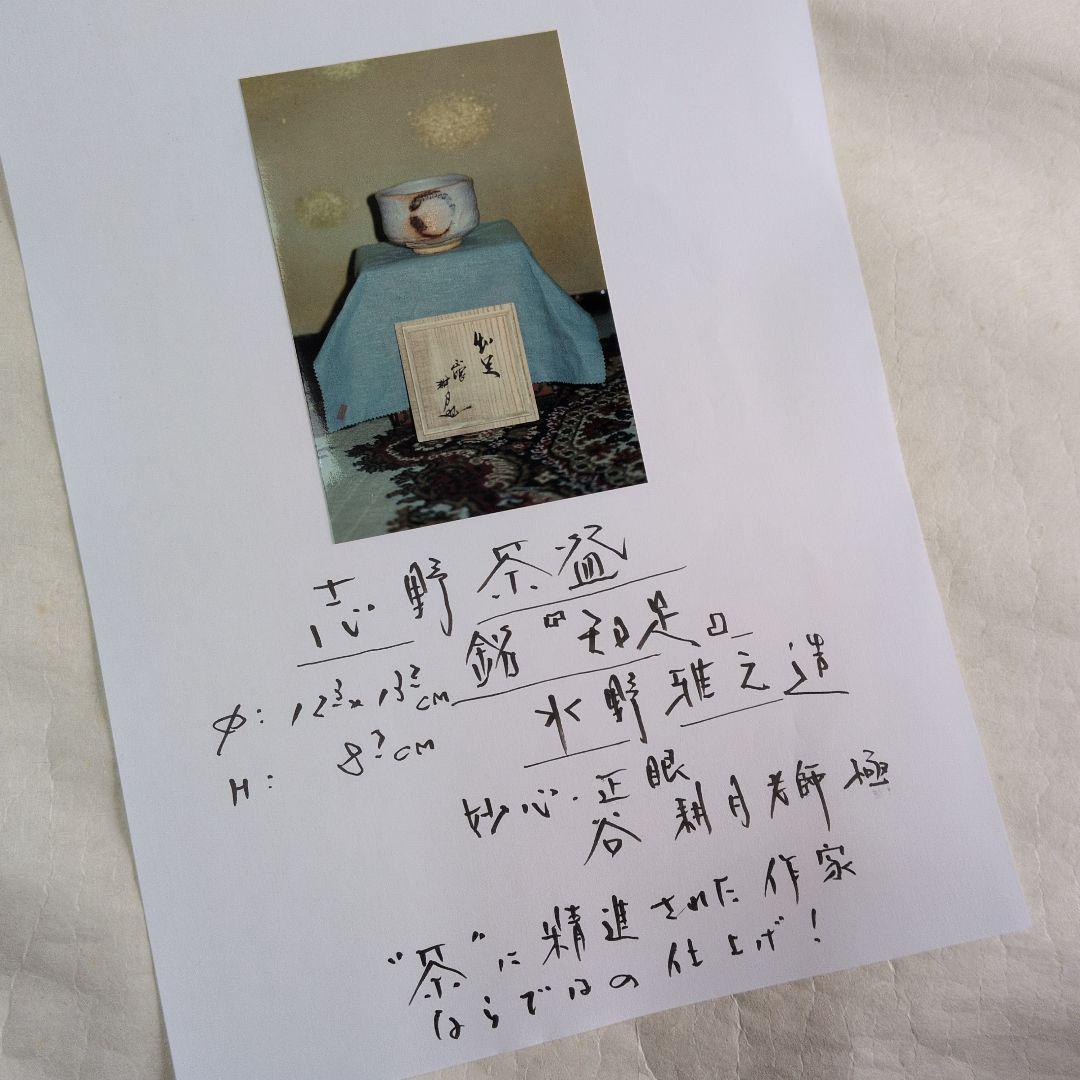 知足
耕月
志野茶盌
銘『知足』
φ: 12³x 13²cm
H: 8²cm
水野雅之造
妙心・正眼
谷耕月老師極
"茶"に精進された作家
ならではの仕上げ!